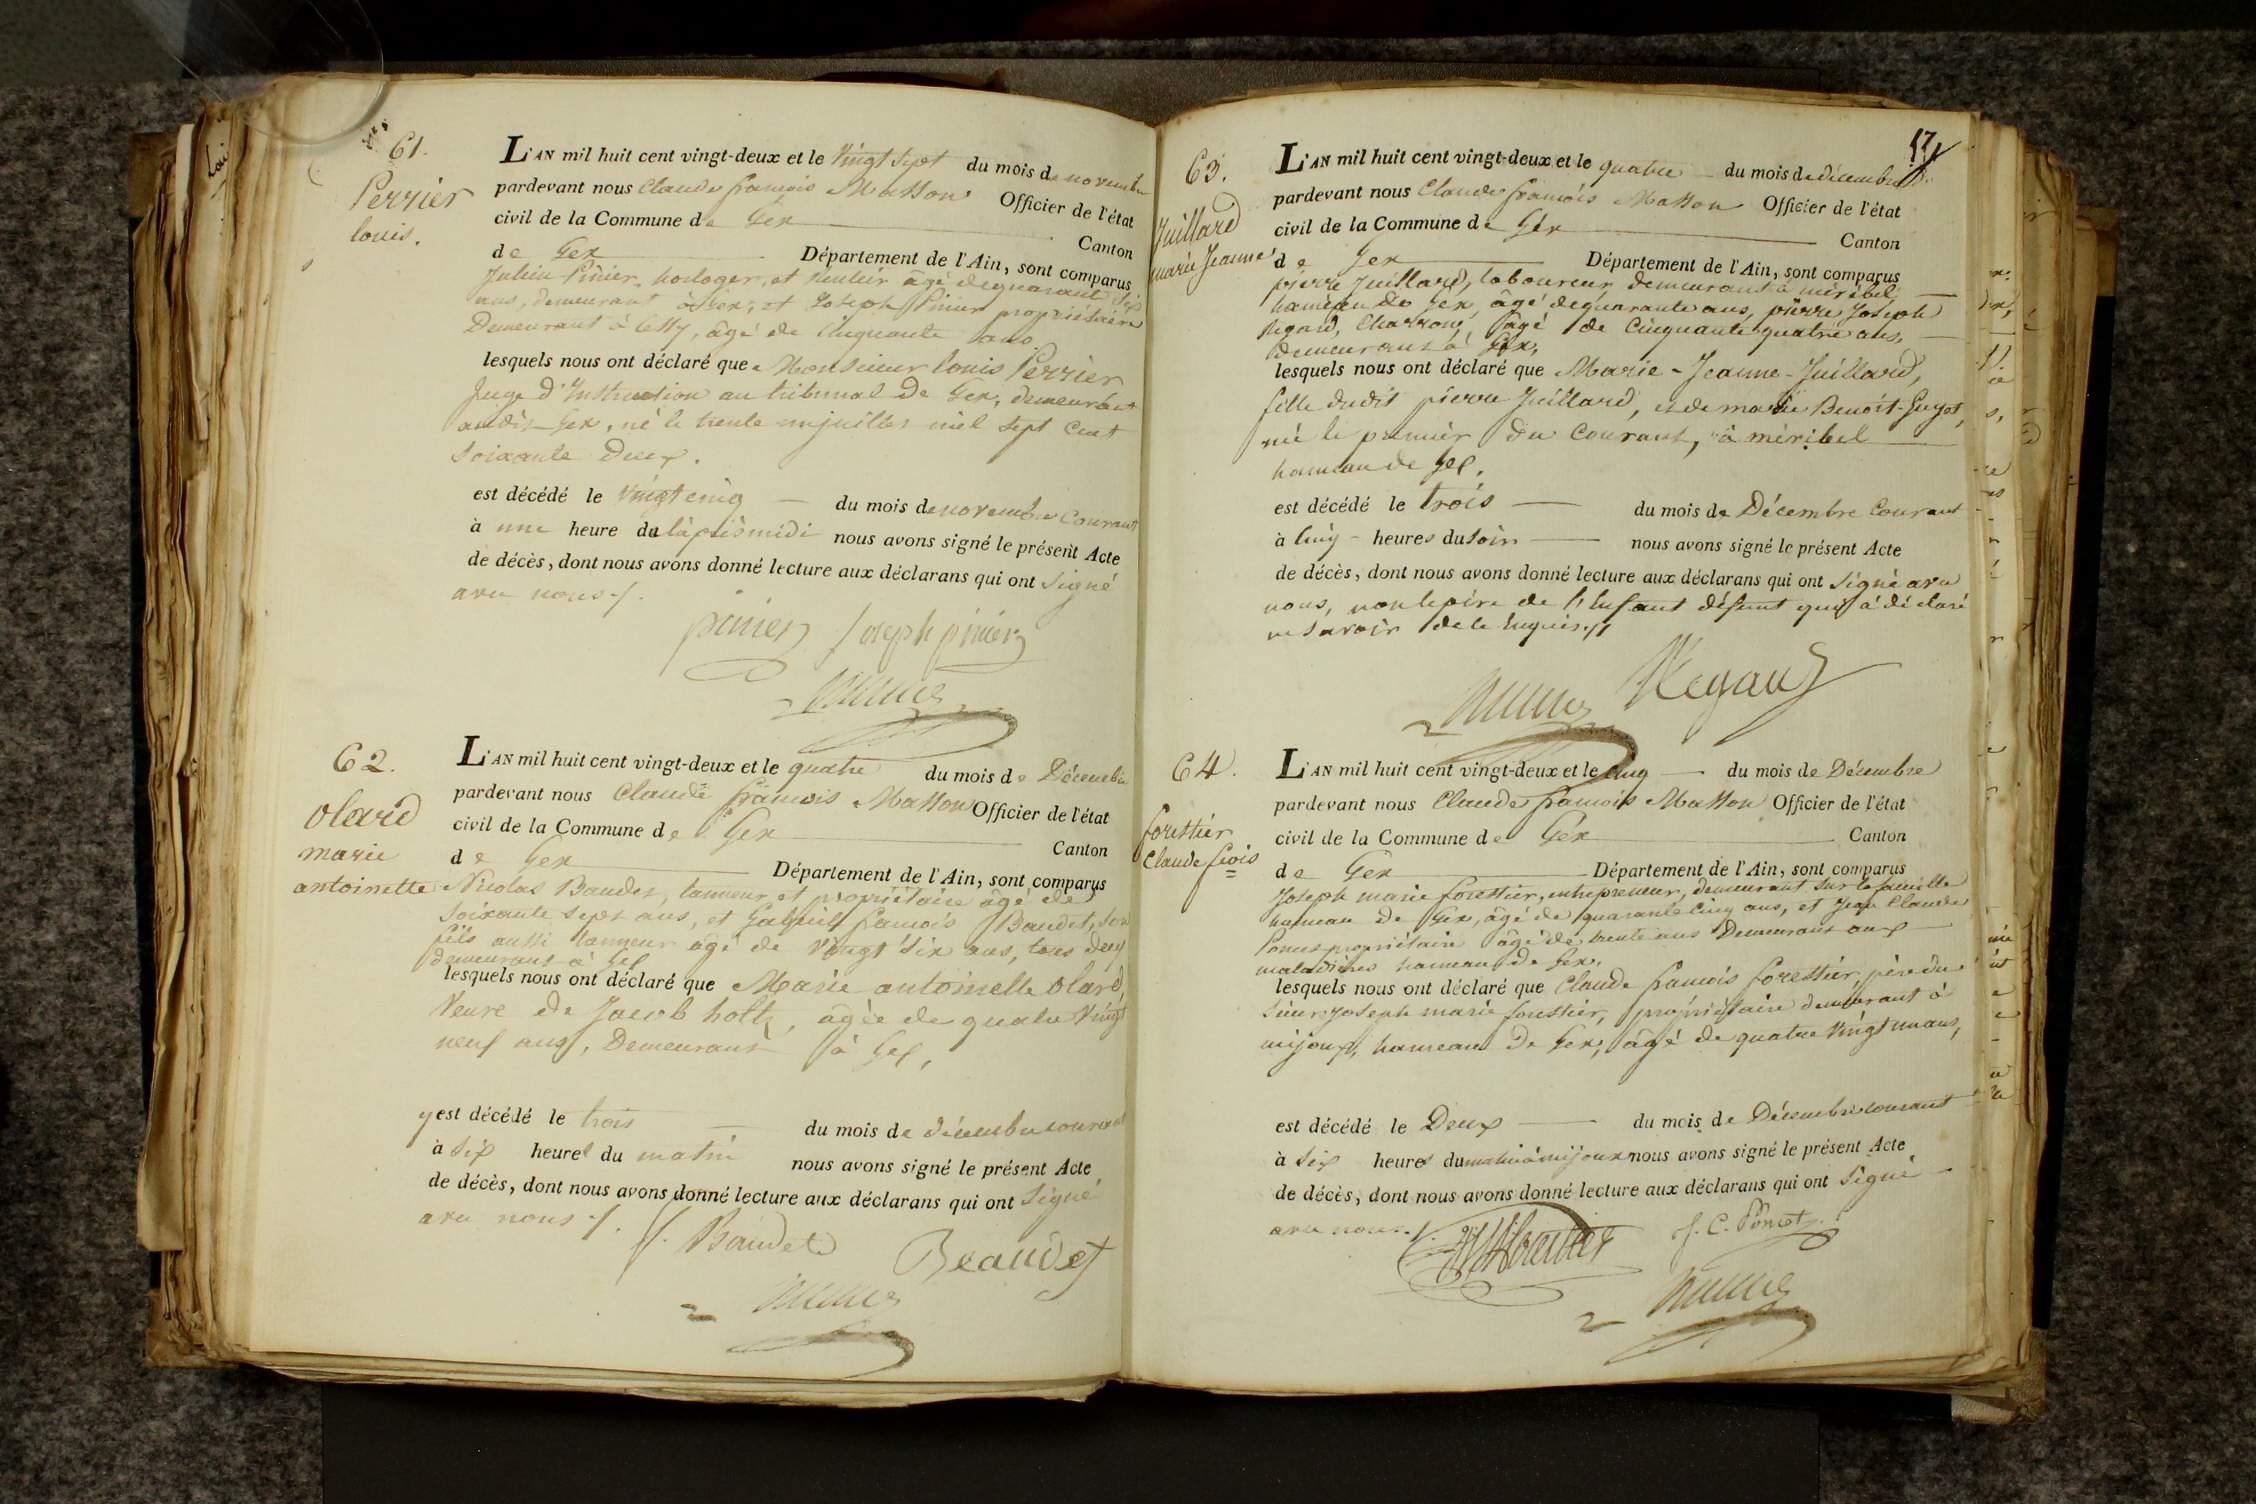 61.
Perrier
louis.
L'AN mil huit cent vingt-deux et le vingt sept du mois de novembre
pardevant nous Claude françois Masson Officier de l'état
civil de la Commune de Gex Canton
de Gex Département de l'Ain, sont comparus
Julien Pinier, horloger, et rentier âgé de quarante six
ans, demeurant à Gex, et Joseph Pinier propriétaire
Demeurant à Cessy, âgé de Cinquante ans.
lesquels nous ont déclaré que Monsieur louis Perrier
Juge d'Instruction au tribunal de Gex, demeurant
audit Gex, né le trente un juillet mil sept cent
soixante Deux.
est décédé le vingt cinq du mois de novembre Courant
à une heure de l'après midi nous avons signé le présent Acte
de décès, dont nous avons donné lecture aux déclarans qui ont signé
avec nous ./.
pinier Joseph pinier
62.
olard
marie
antoinette
L'AN mil huit cent vingt-deux et le quatre du mois de Décembre
pardevant nous Claude françois Masson Officier de l'état
civil de la Commune de Gex Canton
de Gex Département de l'Ain, sont comparus
Nicolas Baudet, tanneur et propriétaire âgé de
soixante sept ans, et Gabriel françois Baudet, son
fils aussi tanneur âgé de vingt six ans, tous deux
demeurant à Gex
lesquels nous ont déclaré que Marie antoinette olard,
Veuve de Jacob holtz, âgée de quatre vingt
neuf ans, Demeurant à Gex,
y est décédé le trois du mois de décembre courant
à six heures du matin nous avons signé le présent Acte
de décès, dont nous avons donné lecture aux déclarans qui ont signé
avec nous ./.
Baudet Beaudet
17
63.
Juillard
marie Jeanne
L'AN mil huit cent vingt-deux et le quatre du mois de décembre
pardevant nous Claude françois Masson Officier de l'état
civil de la Commune de Gex Canton
de Gex Département de l'Ain, sont comparus
pierre Juillard, laboureur demeurant à méribel
hameau de Gex, âgé de quarante ans, pierre Joseph
Regard, Charron, âgé de Cinquante quatre ans,
Demeurant à Gex,
lesquels nous ont déclaré que Marie-Jeanne-Juillard,
fille dudit pierre Juillard, et de marie Benoit-Guyot,
née le premier du Courant, à méribel
hameau de Gex.
est décédé le trois du mois de Décembre Courant
à Cinq heures du soir nous avons signé le présent Acte
de décès, dont nous avons donné lecture aux déclarans qui ont signé avec
nous, non le père de l'Enfant défunt qui a déclaré
ne savoir de ce Enquis ./.
Regard
64.
forestier
Claude fçois
L'AN mil huit cent vingt-deux et le cinq du mois de Décembre
pardevant nous Claude françois Masson Officier de l'état
civil de la Commune de Gex Canton
de Gex Département de l'Ain, sont comparus
Joseph marie forestier, entrepreneur, demeurant sur la faucille
hameau de Gex, âgé de quarante Cinq ans, et Jean Claude
Poncet propriétaire âgé de trente ans Demeurant aux
maladières hameau de Gex.
lesquels nous ont déclaré que Claude françois forestier, père du
sieur Joseph marie forestier, propriétaire demeurant à
mijoux, hameau de Gex, âgé de quatre vingt un ans,
est décédé le Deux du mois de Décembre courant
à six heures du matin à mijoux nous avons signé le présent Acte
de décès, dont nous avons donné lecture aux déclarans qui ont signé
avec nous ./.
J. C. Poncet